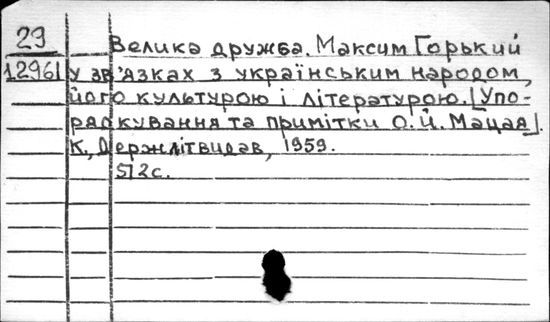 29 Велика дружба. Максим Горький
12961 у зв'язках з українським народом,
його культурою і літературою. [Упо-
рядкування та примітки О.Й. Мацая].
К., Держлітвидав, 1959.
512с.